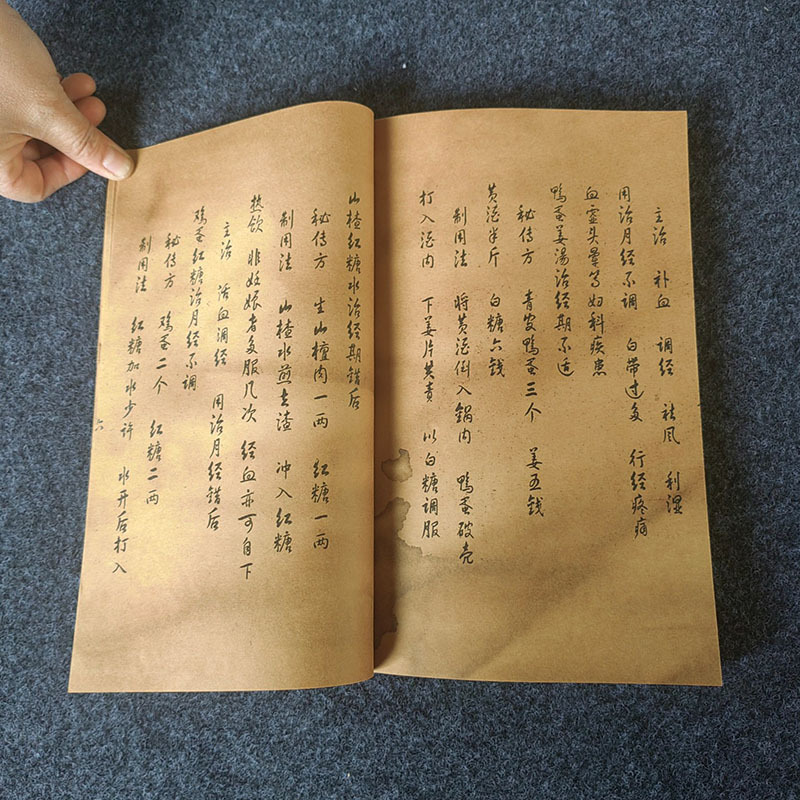 主治 补血 调经 祛风 利湿
用治月经不调 白带过多 行经疼痛
血虚头晕等妇科疾患
鸭蛋姜汤治经期不适
秘传方 青皮鸭蛋三个 姜五钱
黄酒半斤 白糖六钱
制用法 将黄酒倒入锅内 鸭蛋破壳
打入酒内 下姜片共煮 以白糖调服
山楂红糖水治经期错后
秘传方 生山楂肉一两 红糖一两
制用法 山楂水煎去渣 冲入红糖
热饮 非妊娠者多服几次 经血亦可自下
主治 活血调经 用治月经错后
鸡蛋红糖治月经不调
秘传方 鸡蛋二个 红糖二两
制用法 红糖加水少许 水开后打入
六